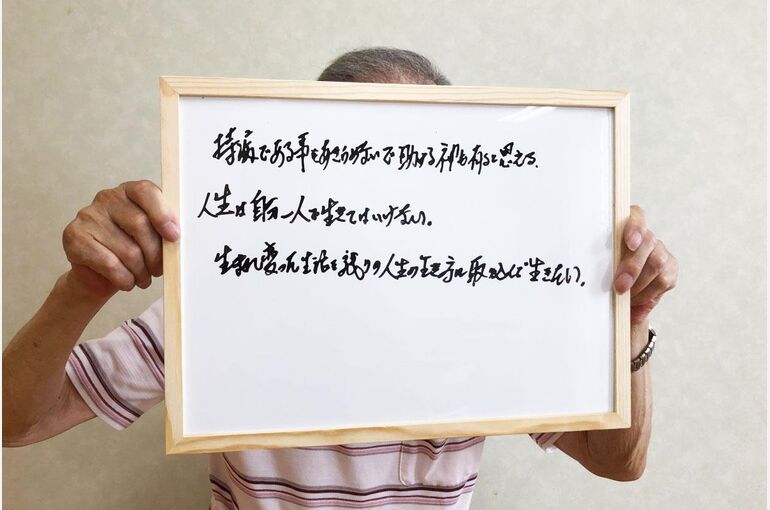 持病である事をあきらめないで助ける神も有ると思える、
人生は自分一人で生きてはいけない。
生まれ変った生活を残りの人生の生き方に取り込んで生きたい。